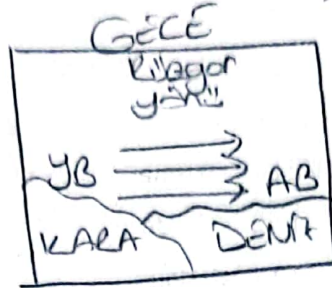 GECE
Rüzgar
yönü
YB
AB
KARA
DENİZ